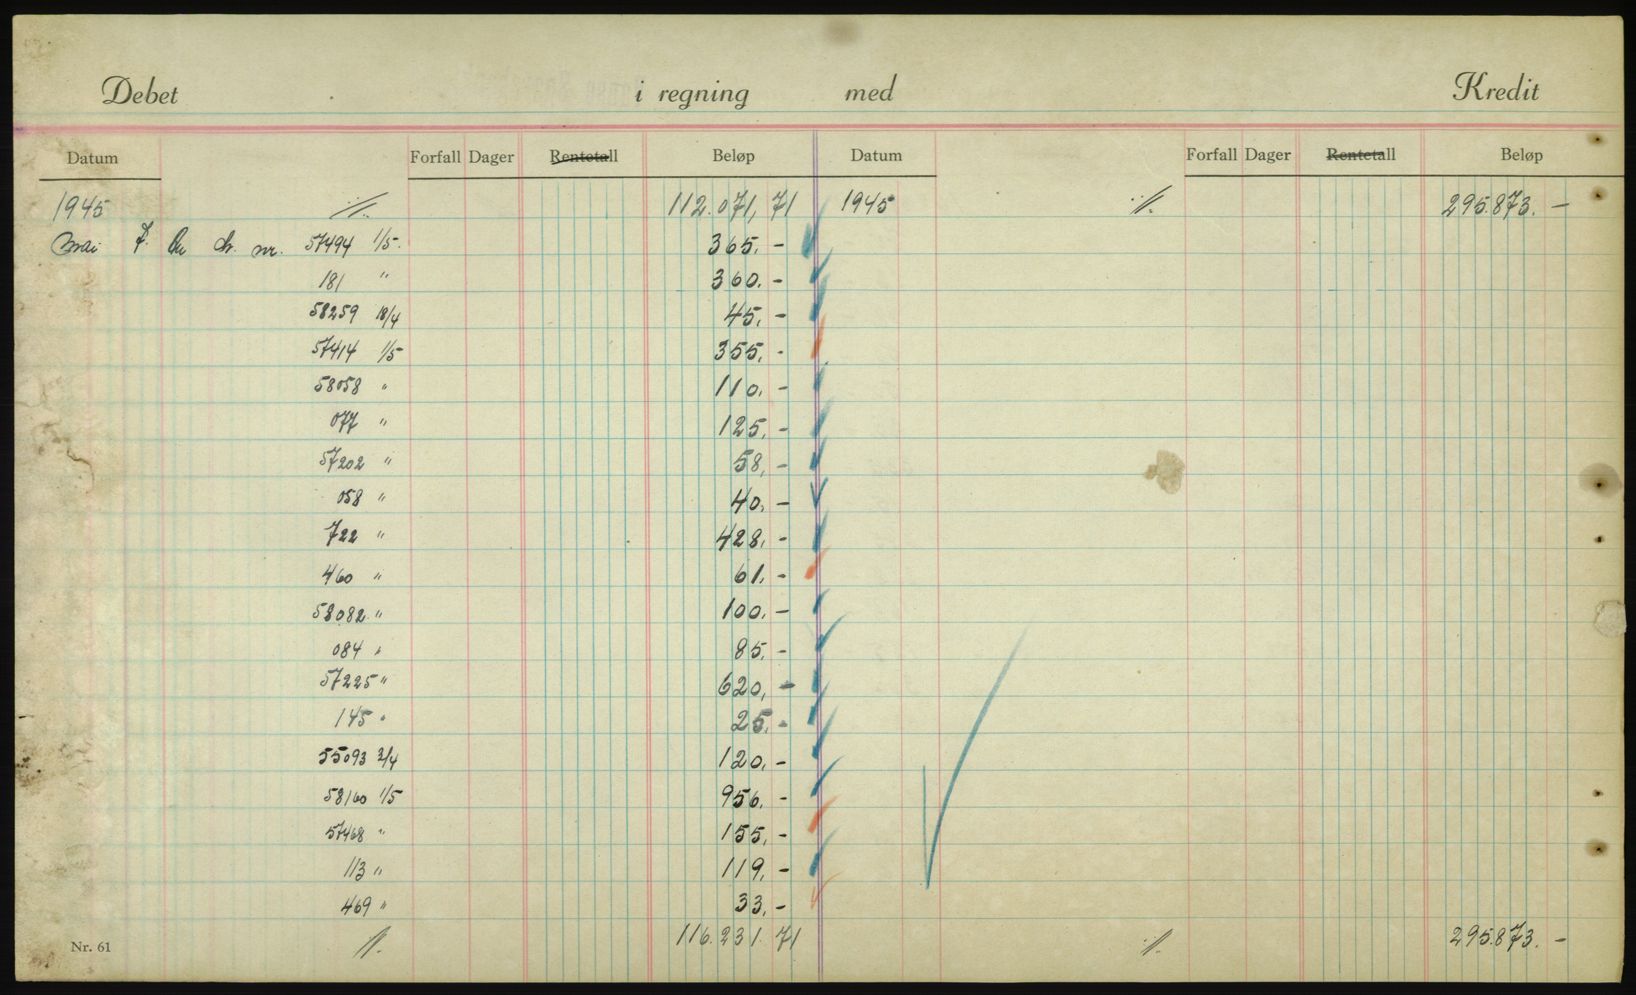 Debet i regning med Kredit
Datum Forfall Dager Rentetall Beløp Datum Forfall Dager Rentetall Beløp
1945 112.071,71 1945 295.873.-
Mai 7. nr. 57494 1/5. 365.-
181 " 360.-
58259 18/4 45,-
57414 1/5 355.-
58058 " 110.-
077 " 125.-
57202 " 58,-
058 " 40,-
722 " 428,-
460 " 61,-
58082 " 100.-
084 " 85.-
57225 " 620,-
145 " 25,-
55093 3/4 120.-
58160 1/5 956.-
57468 " 155,-
113 " 119.-
469 " 33,-
Nr. 61 116.231.71 295.873.-